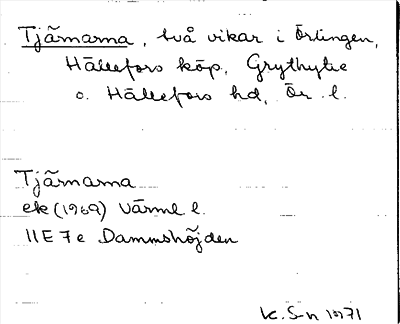 Tjärnarna, två vikar i Örlingen,
Hällefors köp, Grythytte
o. Hällefors hd, Ör. l.
Tjärnarna
ek (1969) Värml l.
11E 7e Dammshöjden
K. S-n 1971